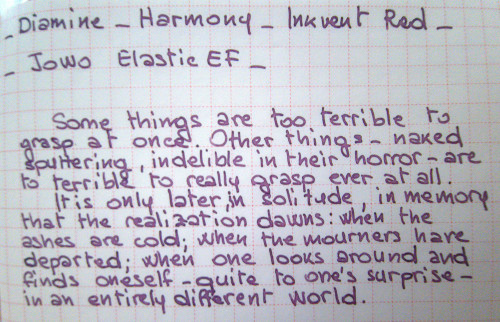 _ Diamine _ Harmony _ Inkvent Red _
_ Jowo Elastic EF _
Some things are too terrible to
grasp at once. Other things - naked
sputtering, indelible in their horror - are
to terrible to really grasp ever at all.
It is only later, in solitude, in memory
that the realization dawns: when the
ashes are cold; when the mourners have
departed; when one looks around and
finds oneself - quite to one's surprise -
in an entirely different world.